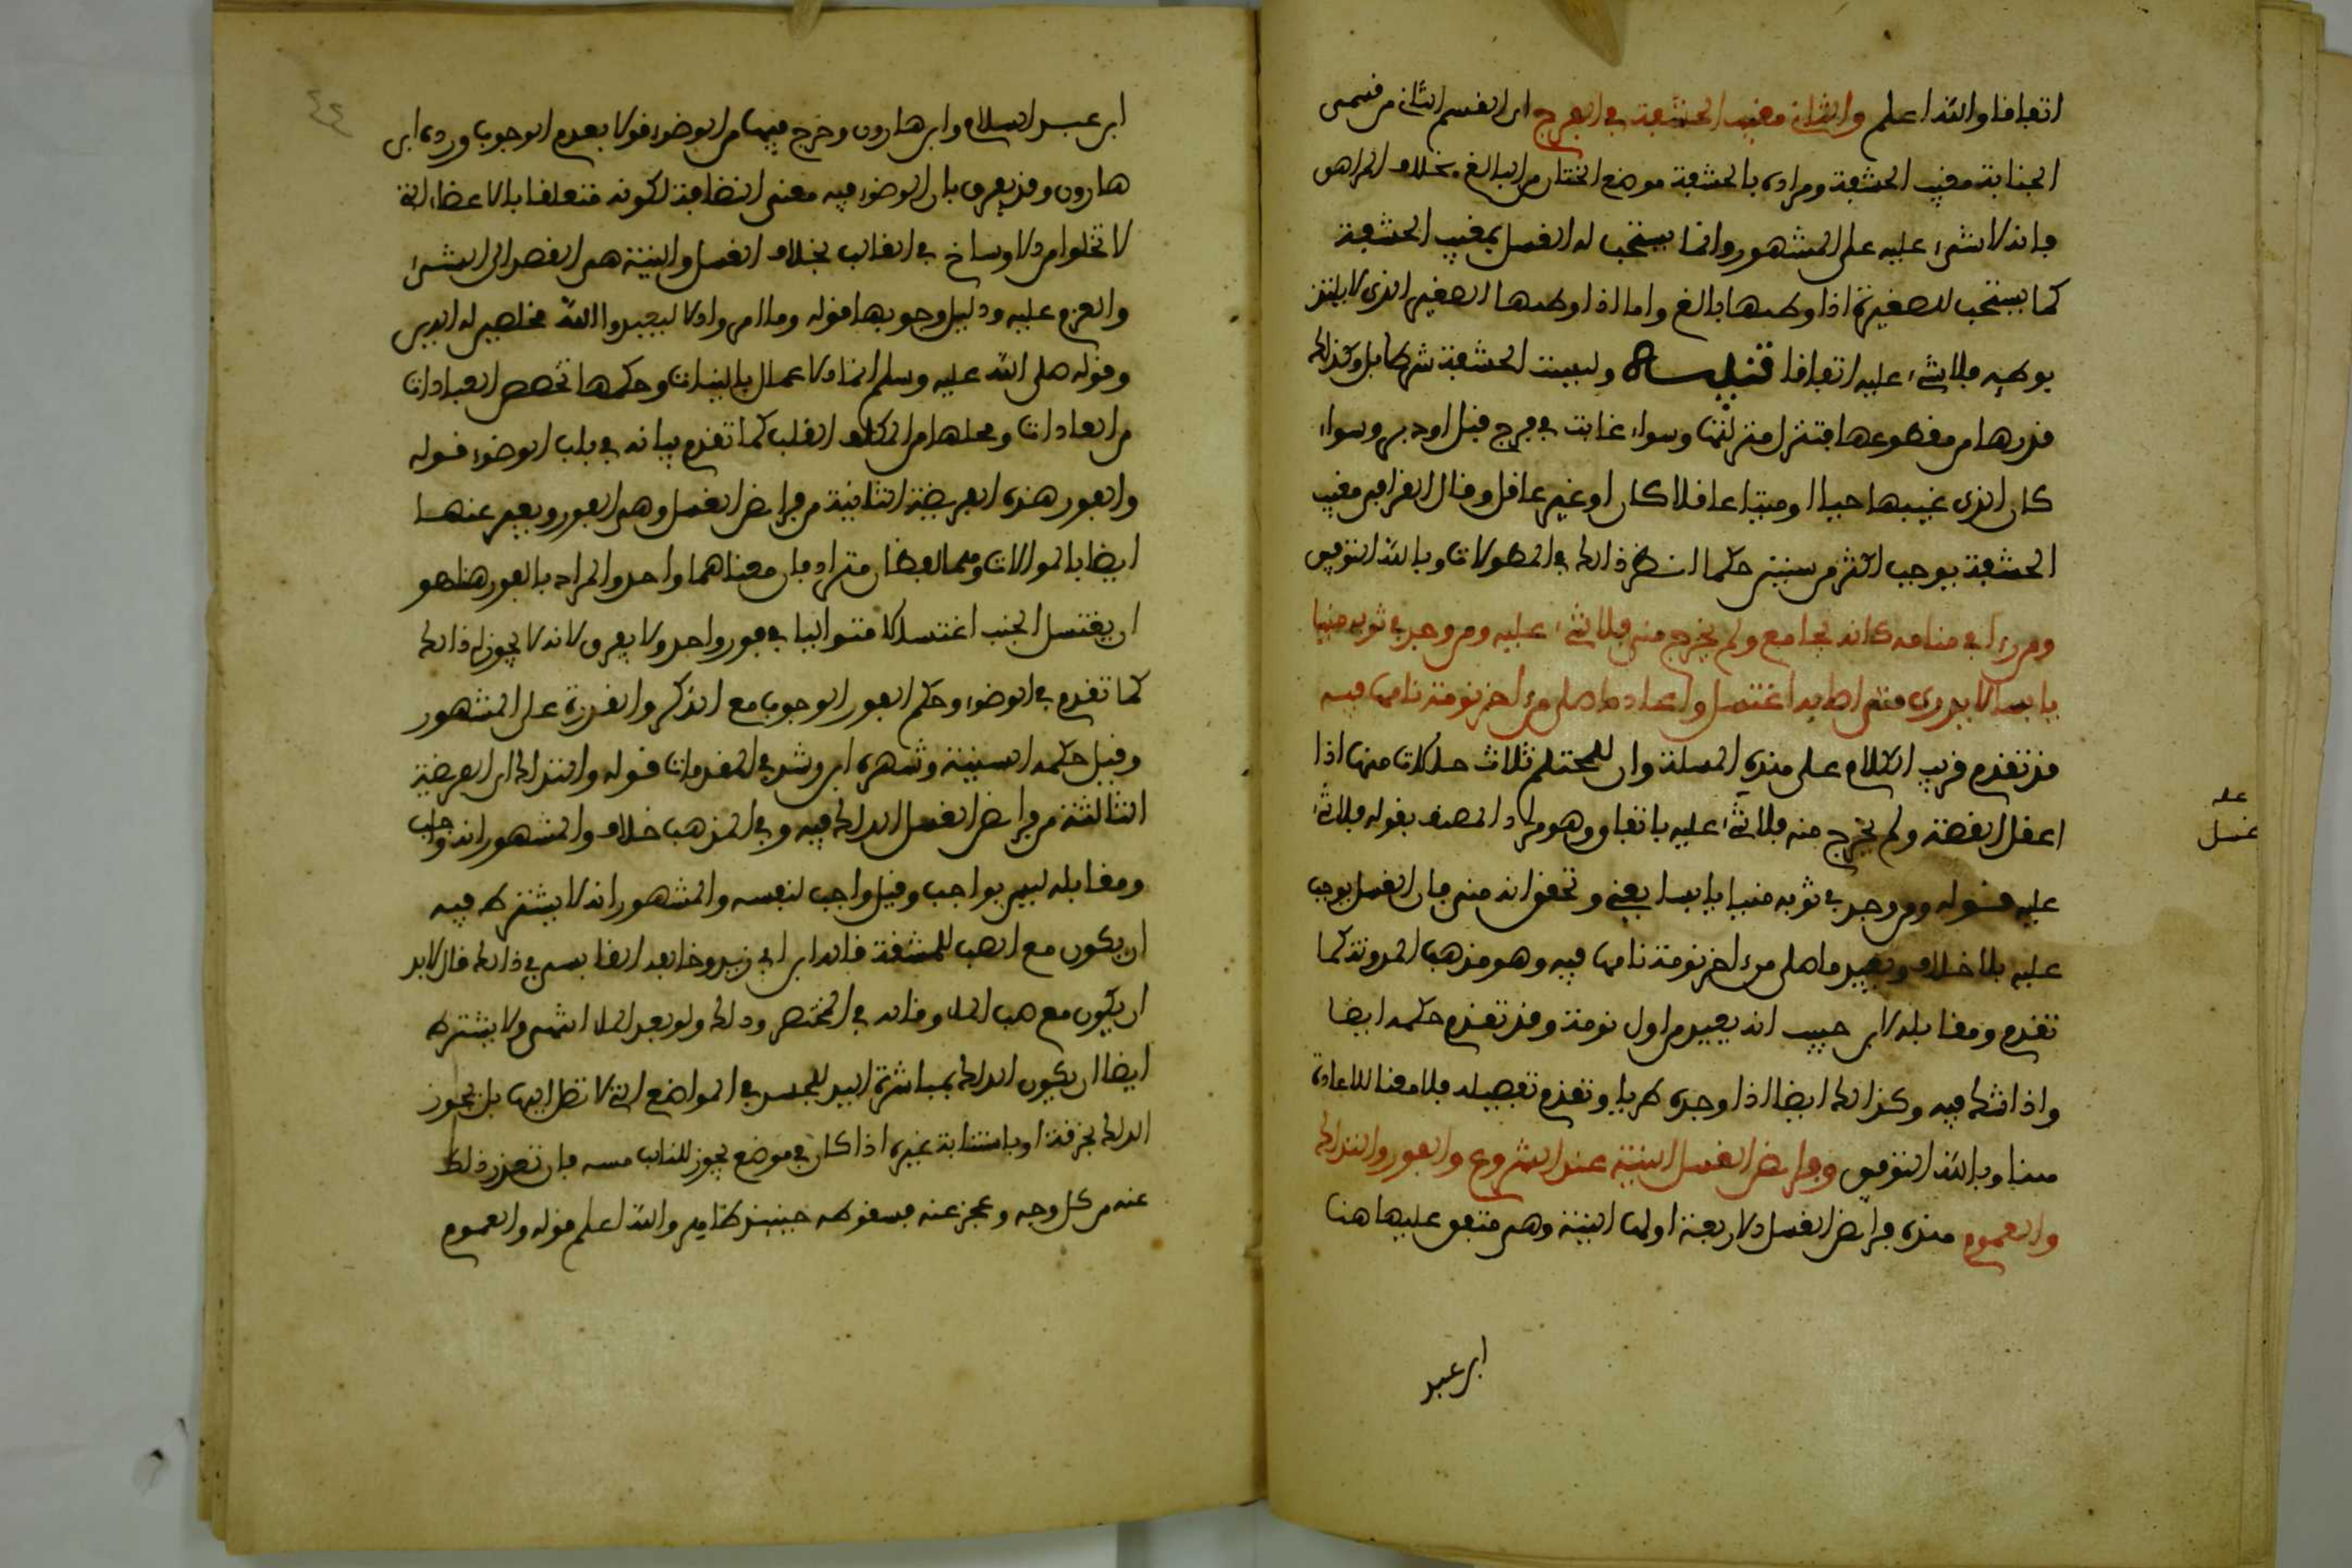 اتفاقا والله اعلم والثاني مغيب الحشفة في الفرج اي القسم الثاني من قسمى
الجنابة مغيب الحشفة ومراده بالحشفة موضع الختان من البالغ بخلاف المراهق
فانه لا شيء عليه على المشهور وانما يستحب له الغسل بمغيب الحشفة
كما يستحب للصغيرة اذا وطئها بالغ واما اذا وطئها الصغير الذي لا يلتذ
بوطئه فلا شيء عليه اتفاقا تنبيه وليست الحشفة شرطا بل وكذلك
قدرها من مقطوعها فتنزل منزلتها وسواء غابت في فرج قبل او دبر وسواء
كان الذي غيبها حيا او ميتا عاقلا كان او غير عاقل وقال القرافي مغيب
الحشفة يوجب اكثر من ستين حكما انظر ذلك في المطولات وبالله التوفيق
ومن رءا في منامه كانه يجامع ولم يخرج منه مني فلا شيء عليه ومن وجد في ثوبه منيا
يابسا لا يدري متى اصابه اغتسل واعاد ما صلى من اخر نومة نامها فيه
قد تقدم قريب الكلام على هذه المسئلة وان للمحتلم ثلاث حالات منها اذا
اعقل القصة ولم يخرج منه فلا شيء عليه باتفاق وهو مراد المصنف بقوله فلا شيء
عليه قوله ومن وجد في ثوبه منيا يابسا يعني وتحقق انه مني فان الغسل يوجب
عليه بلا خلاف ويعيد ما صلى من اخر نومة نامها فيه وهو مذهب المدونة كما
تقدم ومقابله لابن حبيب انه يعيد من اول نومة وقد تقدم حكمه ايضا
واذا شك فيه وكذلك ايضا اذا وجده طريا وتقدم تفصيله فلا معنا للاعادة
هنا وبالله التوفيق وفرايض الغسل النية عند الشروع والفور والتدلك
والعموم هذه فرايض الغسل الاربعة اولها النية وهي متفق عليها هنا
ابن عبد
عله
غسل
٤٤
ابن عبد السلام وابن هارون وخرج فيها من الوضوء قولا بعدم الوجوب ورده ابن
هارون وقد يفرق بان الوضوء فيه معنى النظافة لكونه متعلقا بالاعضاء التي
لا تخلوا من الاوساخ في الغالب بخلاف الغسل والنية هي القصد الى الشيء
والعزم عليه ودليل وجوبها قوله وما امروا الا ليعبدوا الله مخلصين له الدين
وقوله صلى الله عليه وسلم انما الاعمال بالنيات وحكمها تخصص العبادات
من العادات ومحلها من المكلف القلب كما تقدم بيانه في باب الوضوء قوله
والفور هذه الفريضة الثانية من فرايض الغسل وهي الفور ويعبر عنها
ايضا بالموالات وهما لفظان مترادفان معناهما واحد والمراد بالفور هنا هو
ان يغتسل الجنب اغتسالا متواليا في فور واحد ولا يفرق لانه لا يجوز له ذلك
كما تقدم في الوضوء وحكم الفور الوجوب مع الذكر والقدرة على المشهور
وقيل حكمه السنية وشهره ابن رشد في المقدمات قوله والتدلك اي الفريضة
الثالثة من فرايض الغسل الدلك فيه وفي المذهب خلاف والمشهور انه واجب
ومقابله ليس بواجب وقيل واجب لنفسه والمشهور انه لا يشترط فيه
ان يكون مع الصب للمشقة قاله ابن ابي زيد وخالفه القابسي في ذلك قال لابد
ان يكون مع صب الماء وقاله في المختصر ودلك ولو بعد الماء انتهى ولا يشترط
ايضا ان يكون الدلك بمباشرة اليد للجسد في المواضع التي لا تصل اليها بل يجوز
الدلك بخرقة او باستنابة غيره اذا كان في موضع يجوز للنائب مسه فان تعذر ذلك
عنه من كل وجه وعجز عنه فسقوطه حينئذ ظاهر والله اعلم قوله والعموم